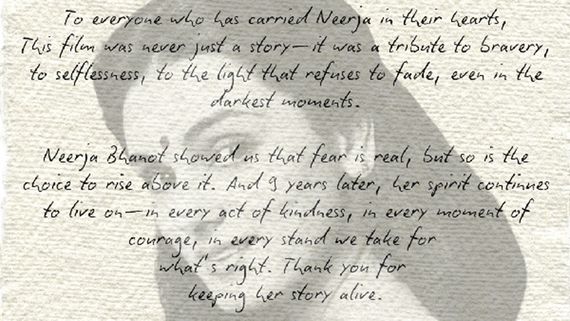 To everyone who has carried Neerja in their hearts,
This film was never just a story—it was a tribute to bravery,
to selflessness, to the light that refuses to fade, even in the
darkest moments.
Neerja Bhanot showed us that fear is real, but so is the
choice to rise above it. And 9 years later, her spirit continues
to live on—in every act of kindness, in every moment of
courage, in every stand we take for
what's right. Thank you for
keeping her story alive.